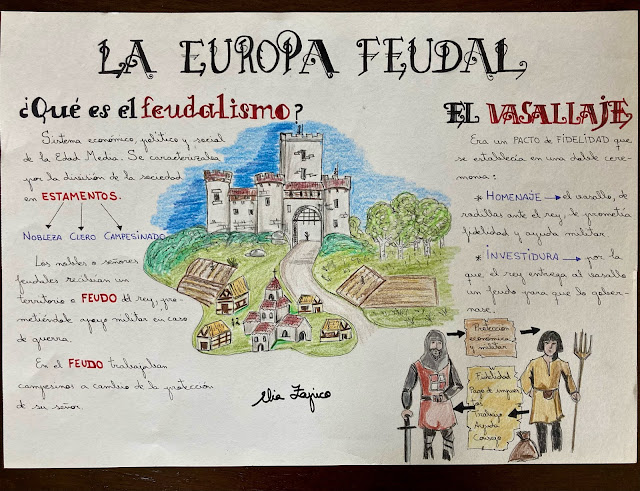 LA EUROPA FEUDAL
¿Qué es el feudalismo?
Sistema económico, político y social
de la Edad Media. Se caracterizaba
por la división de la sociedad
en ESTAMENTOS.
NOBLEZA CLERO CAMPESINADO
Los nobles o señores
feudales recibían un
territorio o FEUDO del rey, pro-
metiéndole apoyo militar en caso
de guerra.
En el FEUDO trabajaban
campesinos a cambio de la protección
de su señor.
EL VASALLAJE
Era un PACTO de FIDELIDAD que
se establecía en una doble cere-
monia:
* HOMENAJE → el vasallo, de
rodillas ante el rey, le prometía
fidelidad y ayuda militar
* INVESTIDURA → por la
que el rey entrega al vasallo
un feudo para que lo gober-
nase.
Protección
económica
y militar
Fidelidad
Pago de impues
tos
Trabajo
Ayuda
Consejo